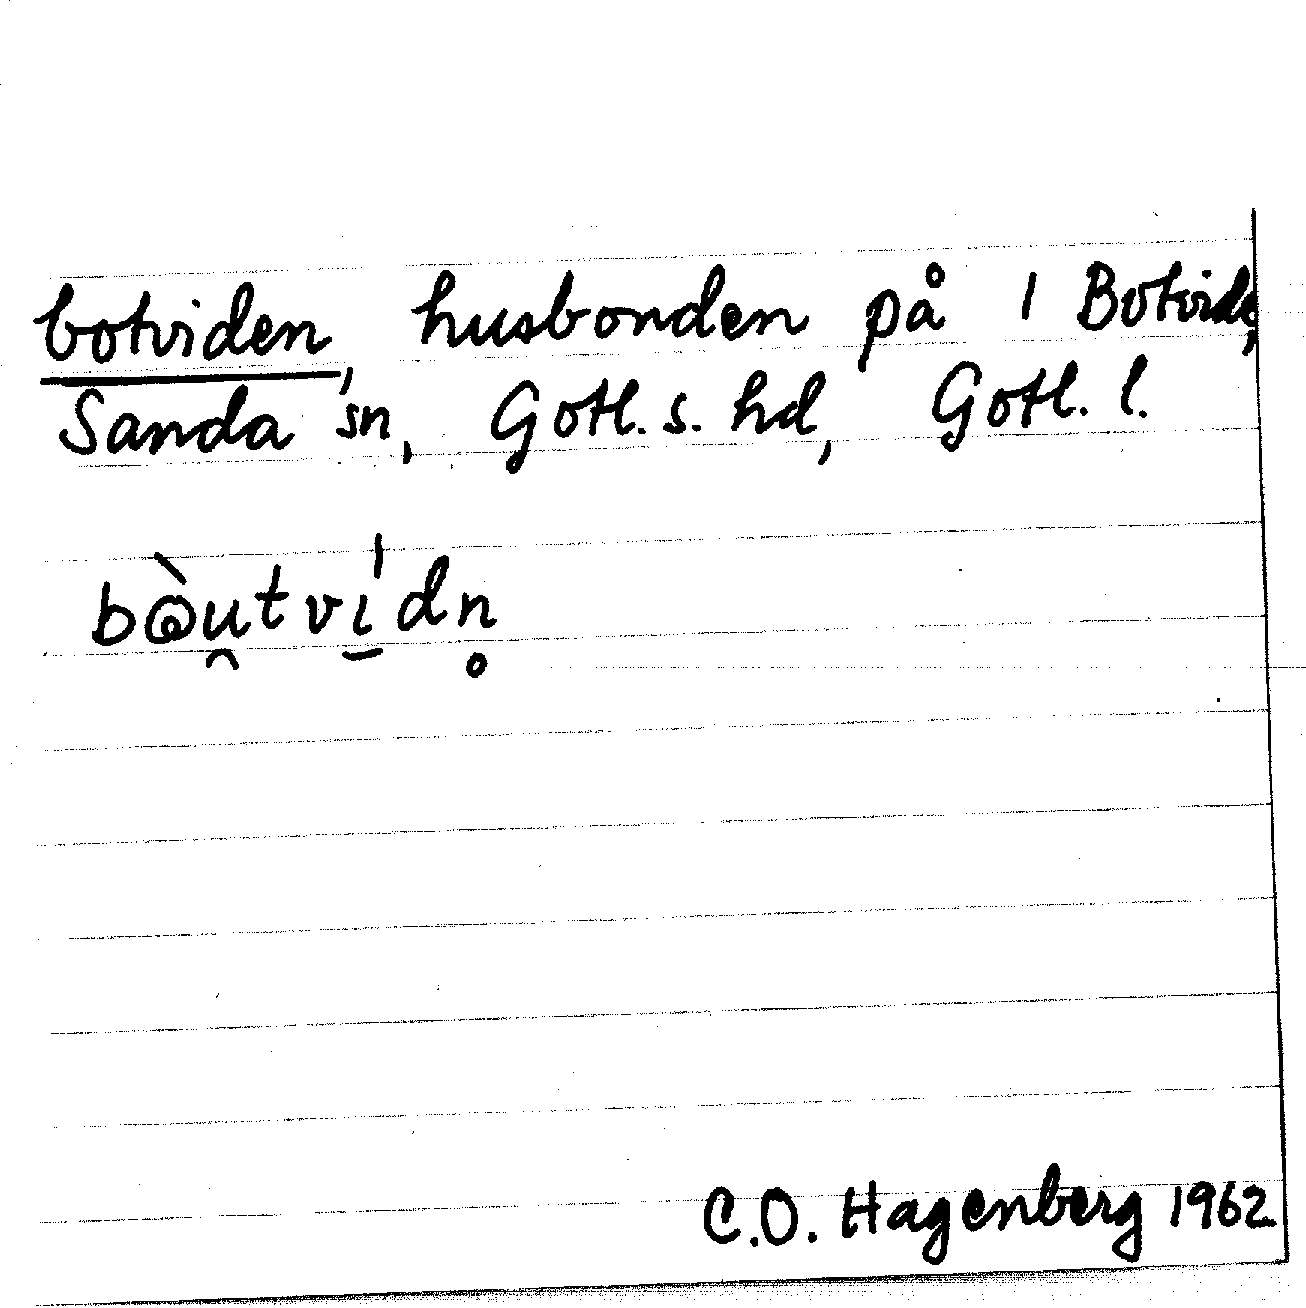 botviden, husbonden på 1 Botvide,
Sanda sn, Gotl. s. hd, Gotl. l.
bꞷ̀u̯tví̱dn̥
C.O. Hagenberg 1962